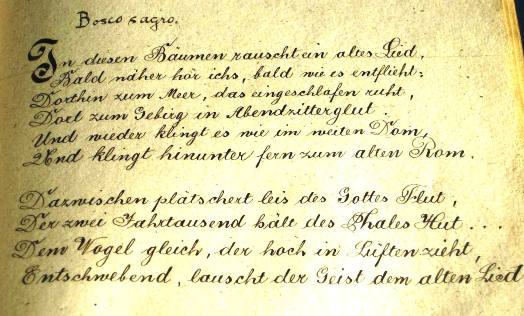 Bosco sagro.
In diesen Bäumen rauscht ein altes Lied,
Bald näher hör ichs, bald wie es entflieht:
Dorthin zum Meer, das eingeschlafen ruht,
Dort zum Gebirg in Abendzitterglut.
Und wieder klingt es wie im weiten Dom,
Und klingt hinunter fern zum alten Rom.
Dazwischen plätschert leis des Gottes Flut,
Der zwei Jahrtausend hält des Thales Hut...
Dem Vogel gleich, der hoch in Lüften zieht,
Entschwebend, lauscht der Geist dem alten Lied